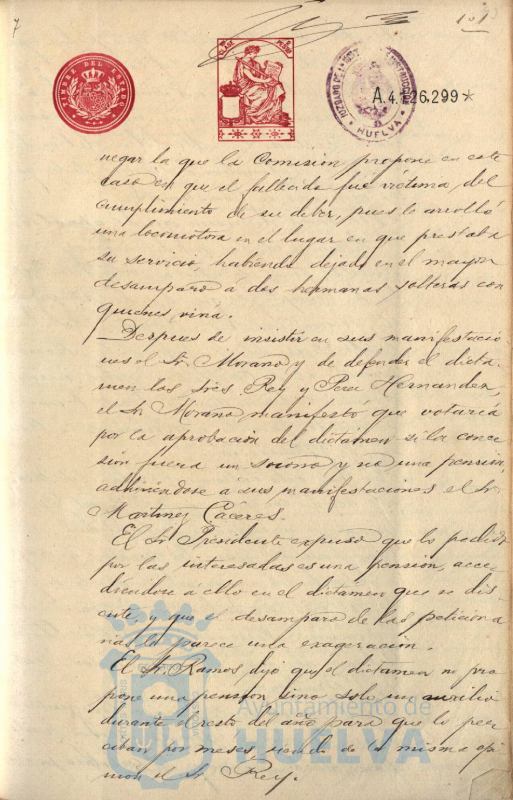 7
101
TIMBRE DEL ESTADO
CLASE
JUZGADO DE
INSTRUCCION
HUELVA
A.4.126.299*
negar la que la Comisión propone en este
caso en que el fallecido fue víctima del
cumplimiento de su deber, pues le arrolló
una locomotora en el lugar en que prestaba
su servicio habiendo dejado en el mayor
desamparo á dos hermanas solteras con
quienes vivía.
Despues de insistir en sus manifestacio
nes el Sr. Morano y de defender el dicta-
men los Sres. Rey y Perez Hernandez,
el Sr. Morano manifestó que votaría
por la aprobación del dictamen si la conce
sión fuera un socorro y no una pensión,
adhiriendose á sus manifestaciones el Sr.
Martinez Caceres.
El Sr. Presidente expuso que lo pedido
por las interesadas es una pensión, acce
diendose á ello en el dictamen que se dis
cute, y que el desamparo de las peticiona
rias le parece una exageración.
El Sr. Ramos dijo que el dictamen no pro
pone una pensión sino solo un auxilio
durante el resto del año para que lo per
ciban por meses siendo de la misma opi
nión el Sr. Rey.
Ayuntamiento de
HUELVA